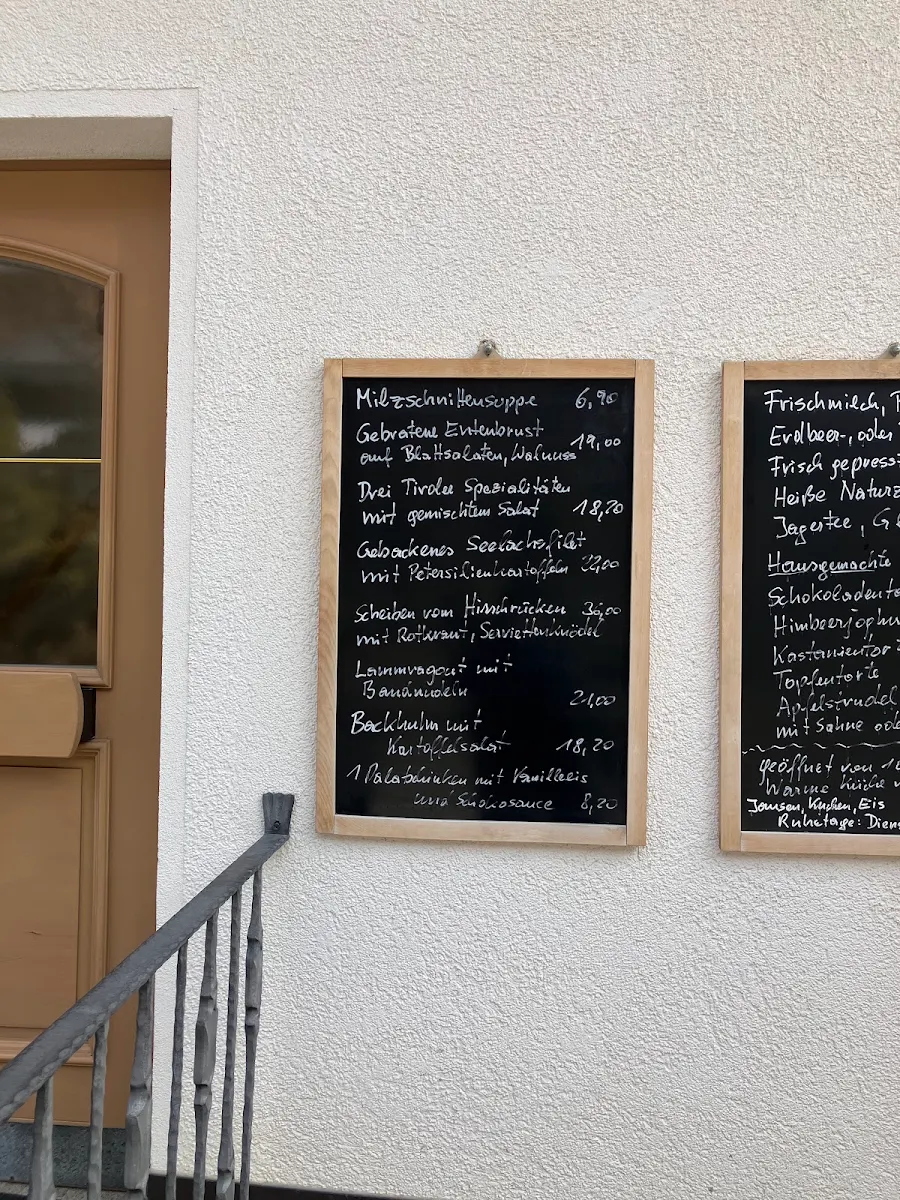 Milzschnittensuppe 6,90
Gebratene Entenbrust
auf Blattsalaten, Walnuss 19,00
Drei Tiroler Spezialitäten
mit gemischtem Salat 18,20
Gebackenes Seelachsfilet
mit Petersilienkartoffeln 22,00
Scheiben vom Hirschrücken 36,00
mit Rotkraut, Serviettenknödel
Lammragout mit
Bandnudeln 21,00
Backhuhn mit
Kartoffelsalat 18,20
1 Palatschinken mit Vanilleeis
und Schokosauce 8,20
Frischmilch,
Erdbeer-, oder
Frisch gepresst
Heiße Naturz
Jagertee, G
Hausgemachte
Schokoladento
Himbeerjoghu
Kastanientort
Topfentorte
Apfelstrudel
mit Sahne ode
geöffnet von 1
Warme Küche
Jausen, Kuchen, Eis
Ruhetage: Diens